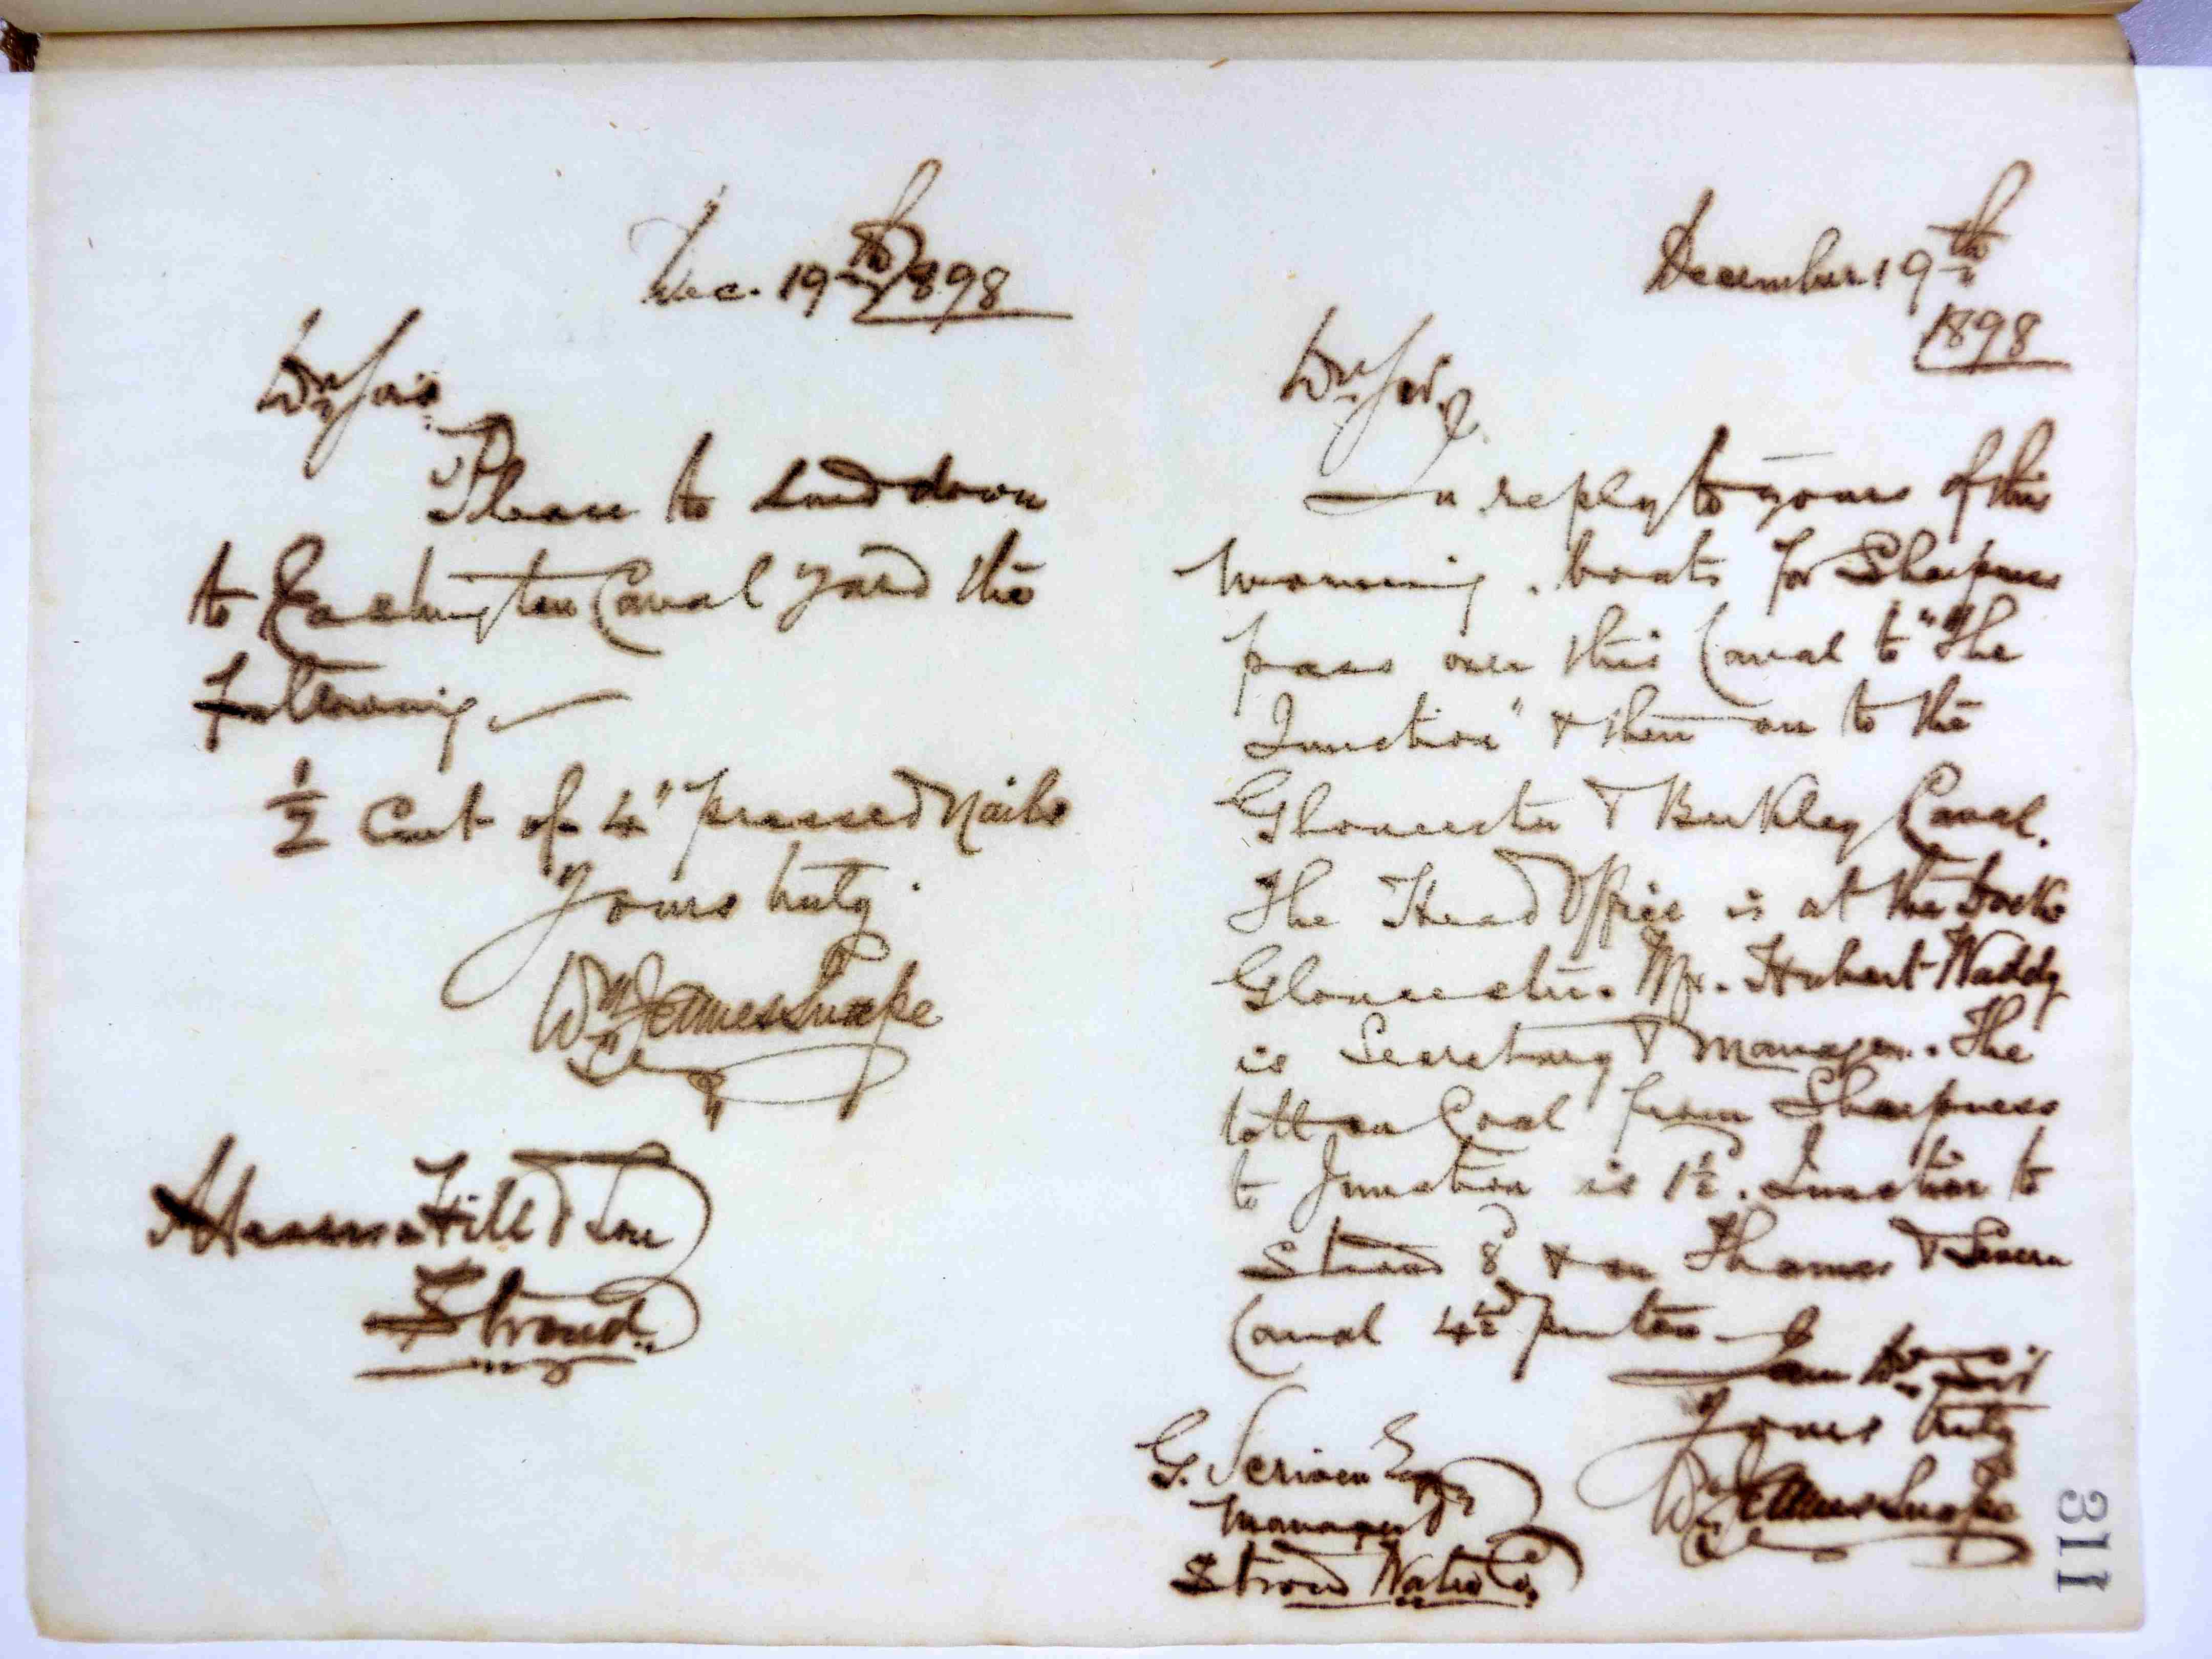 Dec. 19th/898
Dr Sir
Please to send down
to Eastington Canal yard the
following
1/2 Cwt of 4" pressed Nails
Yours truly
Wm James Snape
Messrs Hill & Son
Stroud.
December 19th
1898
Dr Sir,
In reply to yours of this
morning. boats for Sharpness
pass over this Canal to "The
Junction" & then on to the
Gloucester & Berkley Canal.
The Head Office is at the Docks
Gloucester. Mr. Hubert Waddy
is Secretary & Manager. The
toll on Coal from Sharpness
to Junction is 1½. Junction to
Stroud 8d & on Thames & Severn
Canal 4½d per ton
I am Dr Sir
Yours truly
Wm James Snape
G. Scriven Esqre
Manager
Stroud Water Co.
311